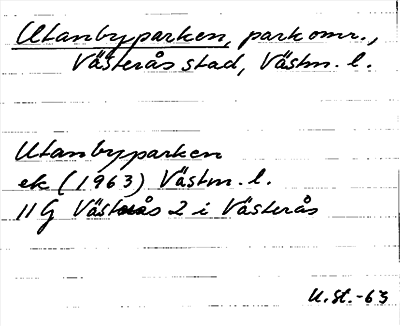 Utanbyparken, parkomr.,
Västerås stad, Västm. l.
Utanbyparken
ek (1963) Västm. l.
11 G Västerås 2 i Västerås
U. St. -63